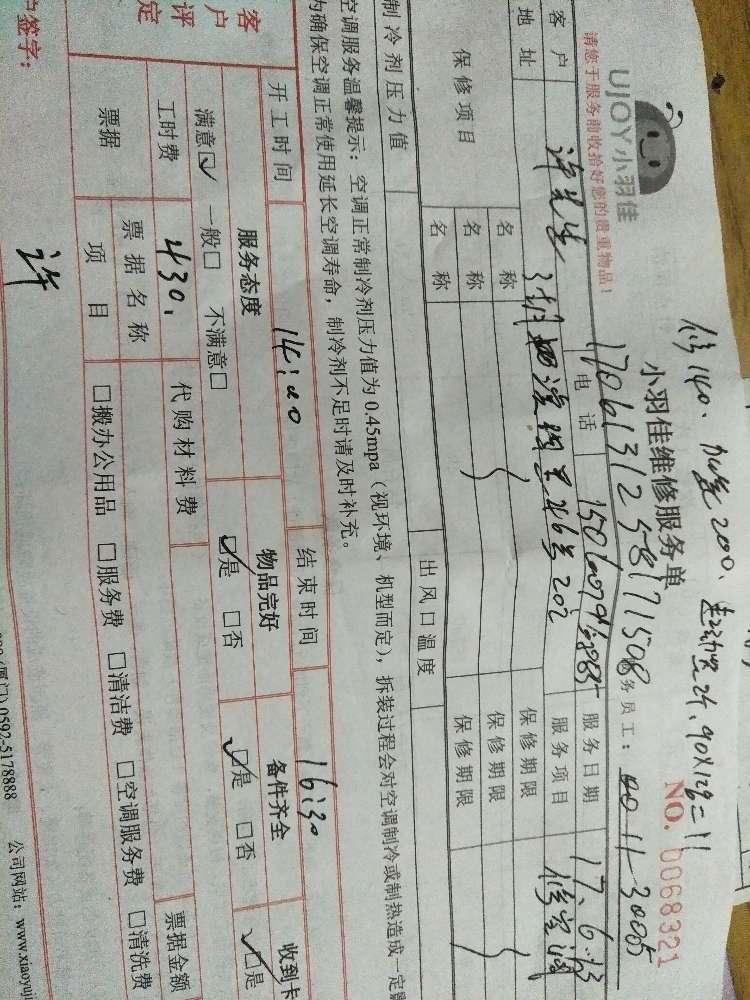 修140、加氨200、
UJOY小羽佳
小羽佳维修服务单
NO. 0068321
请您于服务前收拾好您的贵重物品！
170613125817150
务员工：
客户 许先生 电话 服务日期 17.6.13
地址 服务项目 修空调
保修项目 名称 保修期限
名称 保修期限
名称 保修期限
制冷剂压力值 出风口温度
空调服务温馨提示：空调正常制冷剂压力值为0.45mpa（视环境、机型而定），拆装过程会对空调制冷或制热造成一定
为确保空调正常使用延长空调寿命，制冷剂不足时请及时补充。
开工时间 14:00 结束时间 16:30
客户评定 服务态度 物品完好 备件齐全 收到卡
满意☑ 一般□ 不满意□ ☑是 □否 ☑是 □否 ☑是
工时费 430. 代购材料费 票据金额
票据 票据名称
项目 □搬办公用品 □服务费 □清洁费 □空调服务费 □清洗费
户签字： 许
(厦门) 0592-5178888 公司网站：www.xiaoyuji